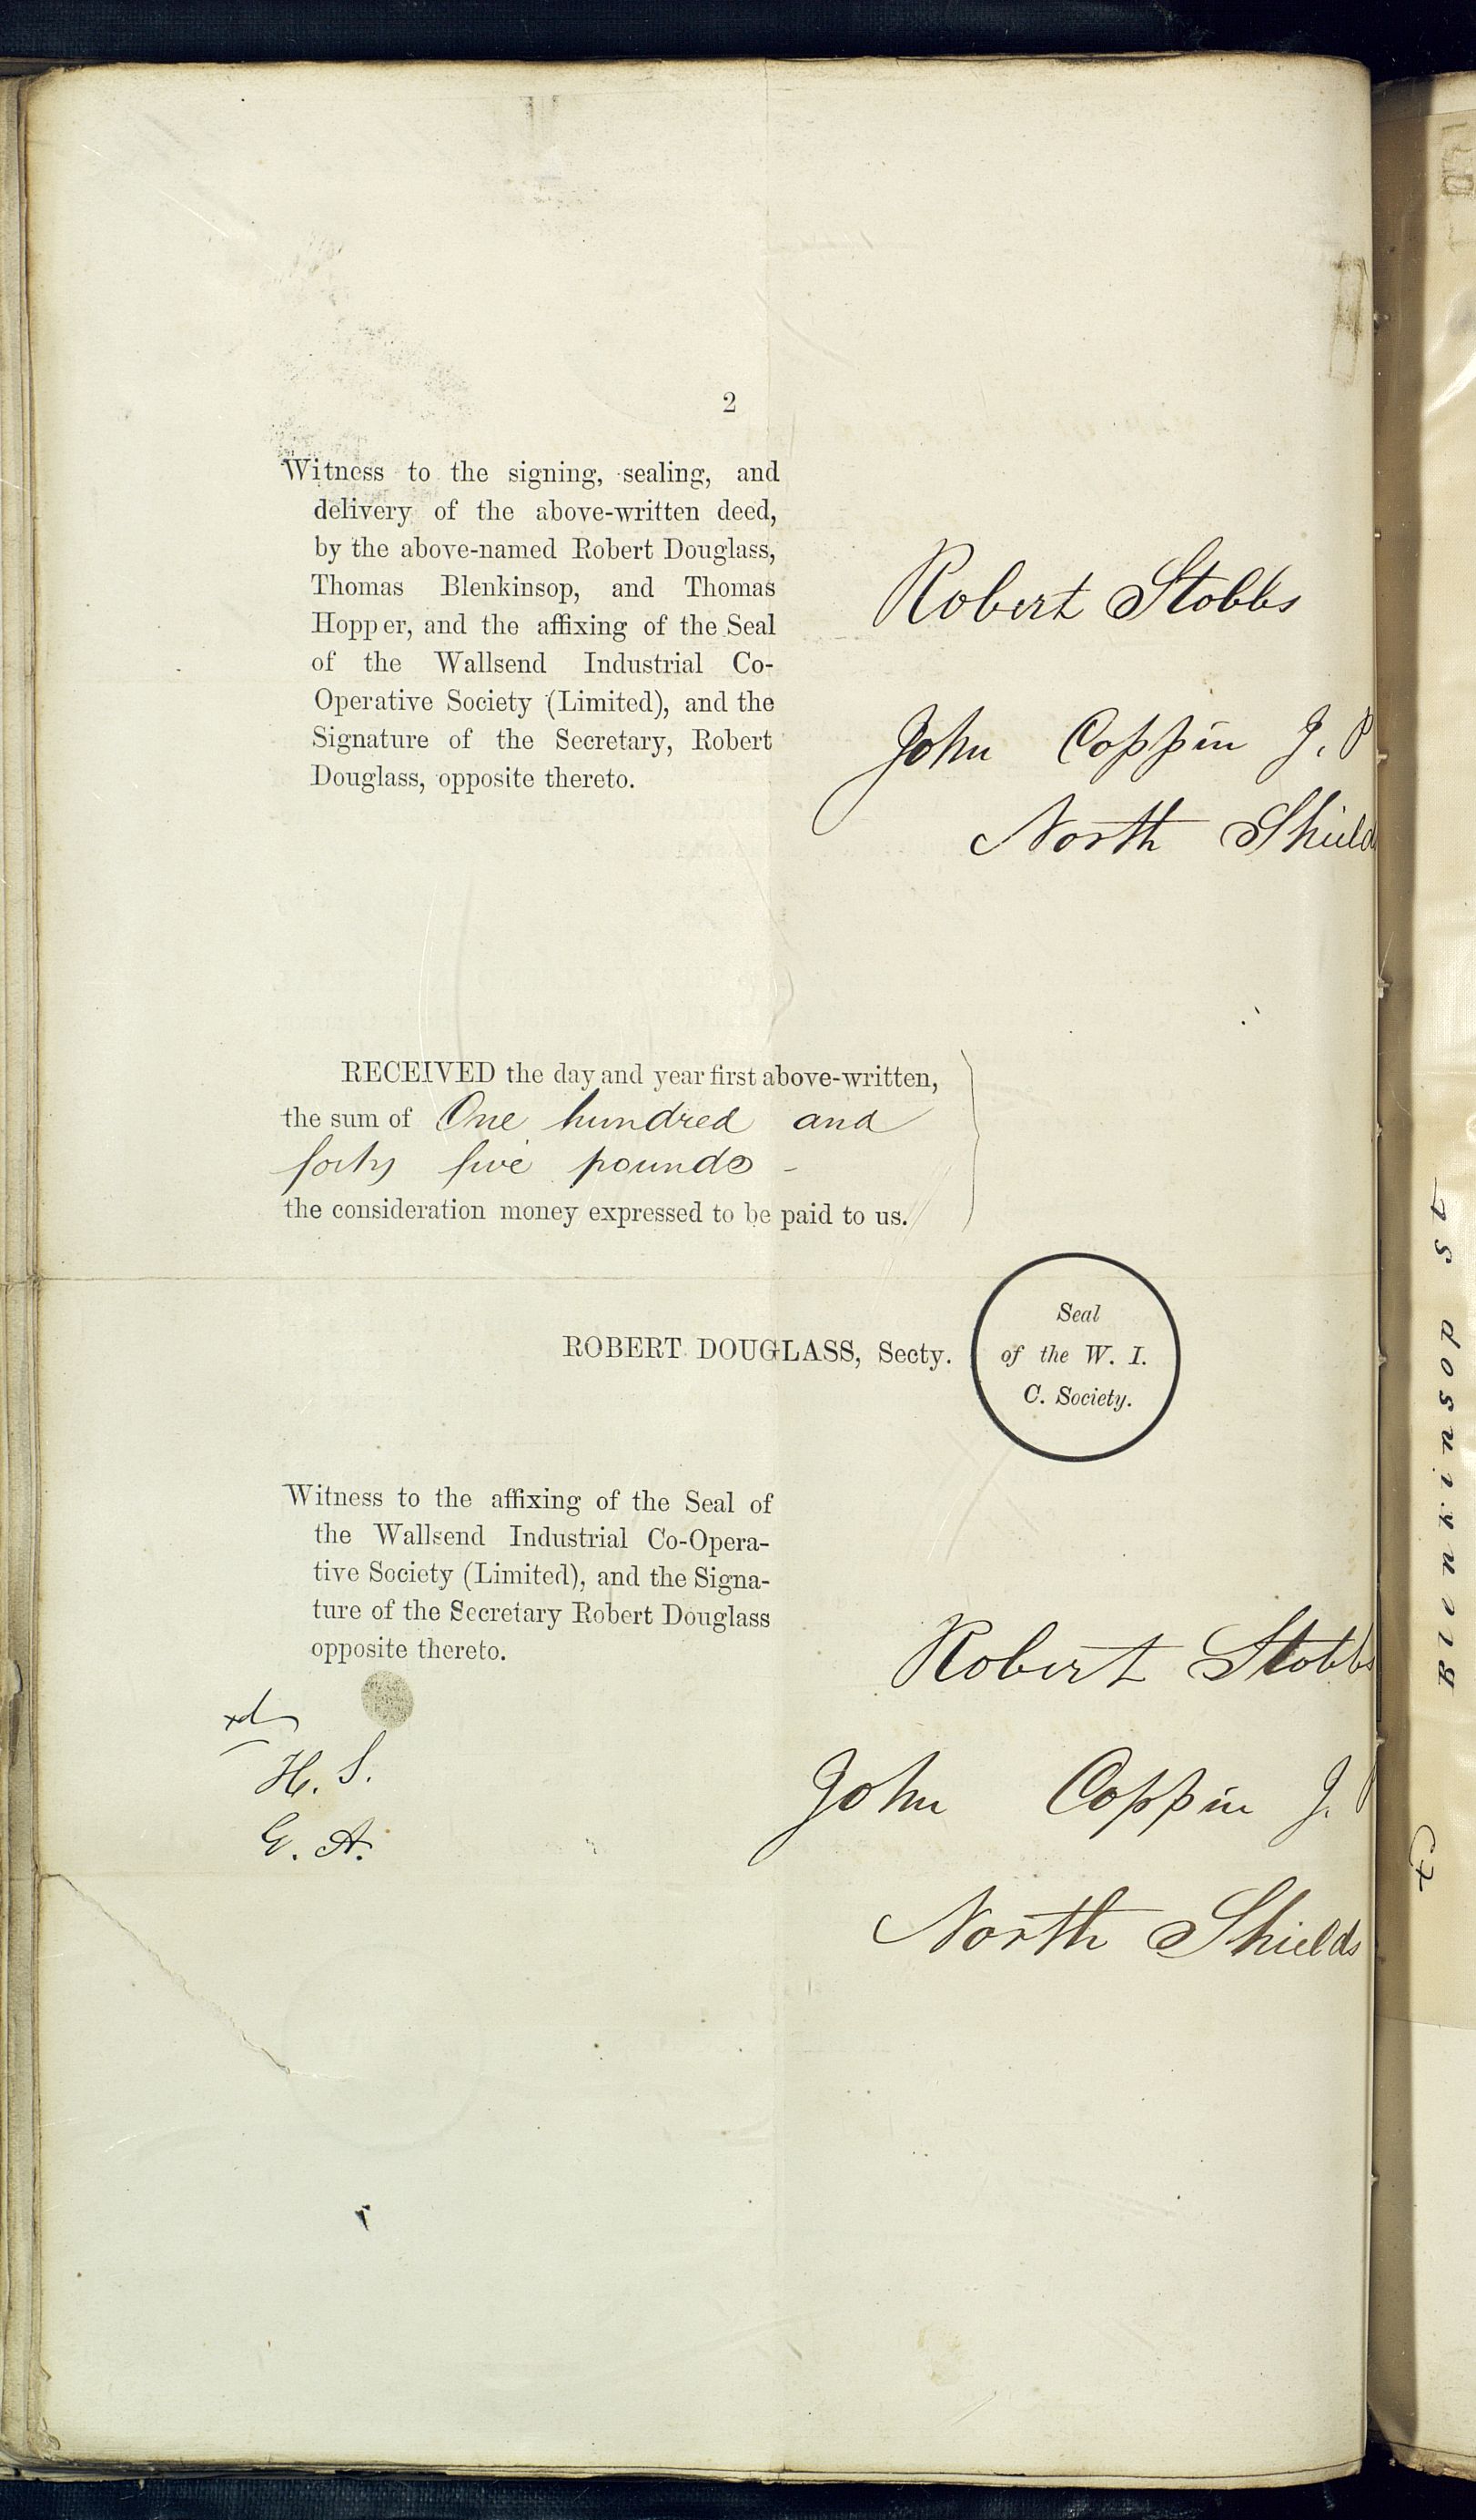 2
Witness to the signing, sealing, and
delivery of the above-written deed,
by the above-named Robert Douglass,
Thomas Blenkinsop, and Thomas
Hopper, and the affixing of the Seal
of the Wallsend Industrial Co-
Operative Society (Limited), and the
Signature of the Secretary, Robert
Douglass, opposite thereto.
Robert Stobbs
John Coppin J. P
North Shield
RECEIVED the day and year first above-written,
the sum of One hundred and
forty five pounds -
the consideration money expressed to be paid to us.
ROBERT DOUGLASS, Secty.
Seal
of the W. I.
C. Society.
Witness to the affixing of the Seal of
the Wallsend Industrial Co-Opera-
tive Society (Limited), and the Signa-
ture of the Secretary Robert Douglass
opposite thereto.
Robert Stobbs
John Coppin J.
North Shields
xd
H. S.
G. A.
Blenkinsop St